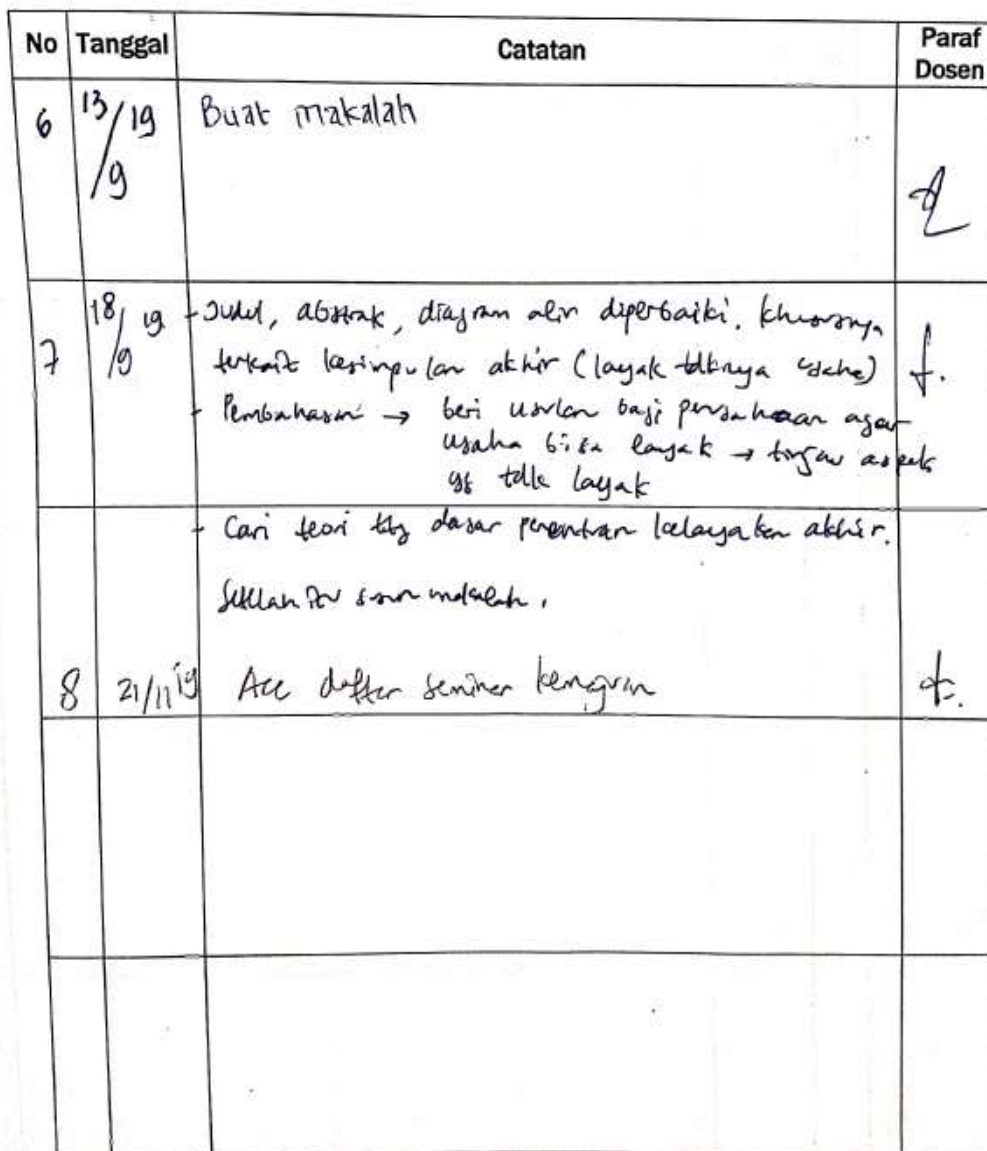 No Tanggal Catatan Paraf Dosen
6 13/9 19 Buat makalah
7 18/9 19 - Judul, abstrak, diagram alir diperbaiki, khususnya
terkait kesimpulan akhir (layak tdknya usaha)
- Pembahasan → beri usulan bagi perusahaan agar
usaha bisa layak → tinjau aspek
yg tdk layak
- Cari teori ttg dasar penentuan kelayakan akhir.
Setelah itu susun makalah.
8 21/11 19 Acc daftar seminar